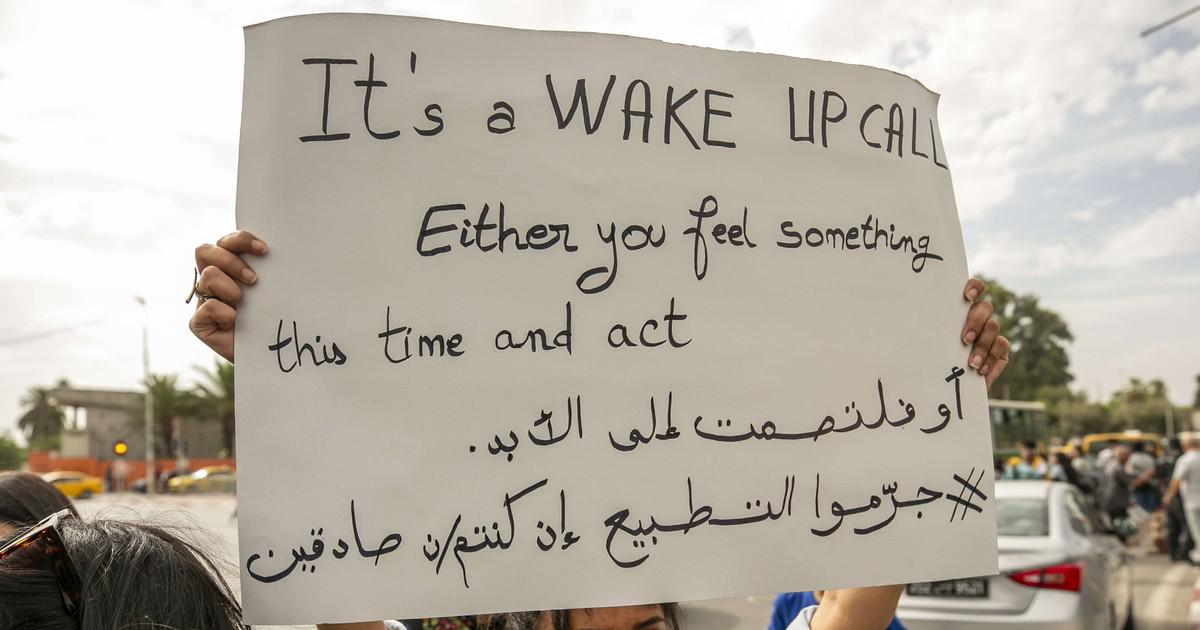 It's a WAKE UP CALL
Either you feel something
this time and act
أو فلتصمت إلى الأبد.
#جرّموا التطبيع إن كنتم/ن صادقين